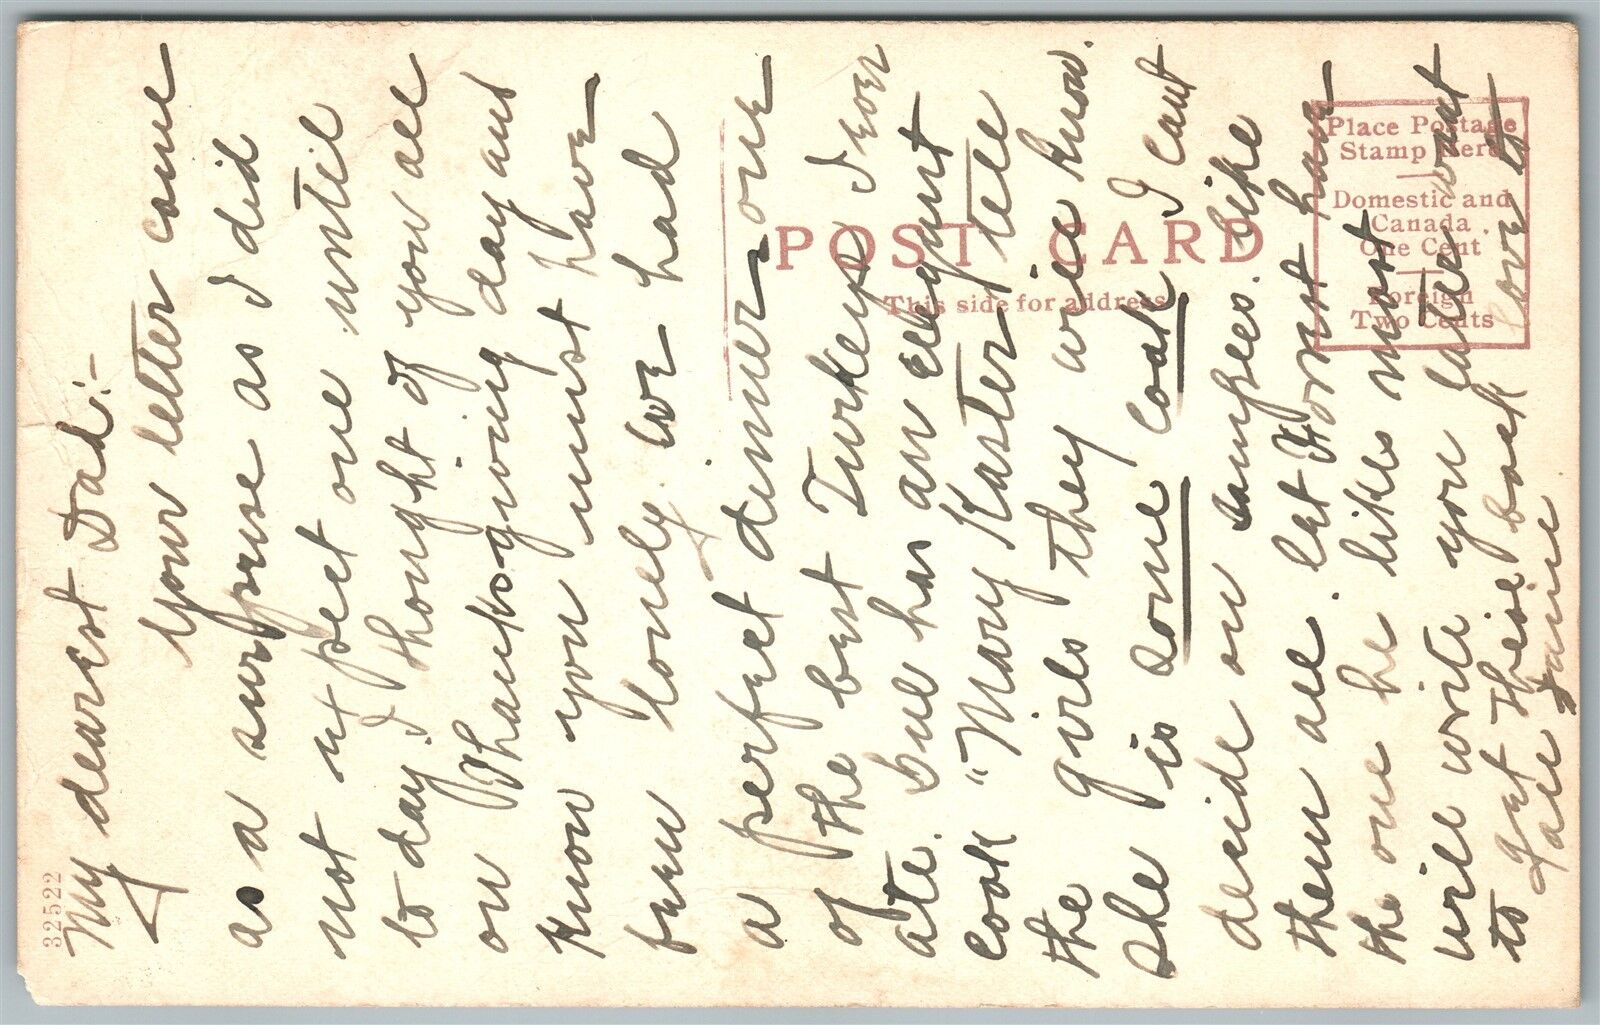 32522
My dearest Dad:-
Your letter came
as a surprise as I did
not expect one until
to day. I thought of you all
on Thanksgiving day and
know you must have
been lonely. We had
a perfect dinner - one
of the best Turkeys I ever
ate. Bill has an elegant
cook "Mary Kaster" tell
the girls they will know.
She is some cook I cant
decide on camphes. like
them all. let Forrest have
the one he likes most
will write you later want
to get these back love to
all Janie
POST CARD
This side for address
Place Postage
Stamp Here
Domestic and
Canada
One Cent
Foreign
Two Cents